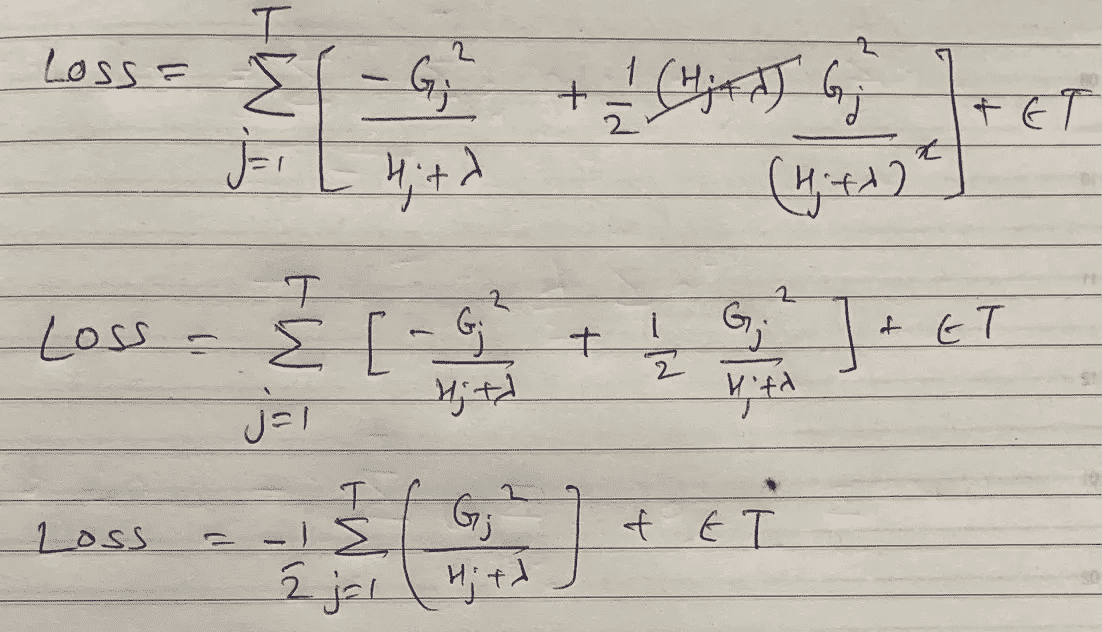 Loss = $\sum_{j=1}^{T} \left[ \frac{-G_j^2}{H_j+\lambda} + \frac{1}{2} \cancel{(H_j+\lambda)} \frac{G_j^2}{(H_j+\lambda)^{\cancel{2}}} \right] + \epsilon T$
Loss = $\sum_{j=1}^{T} \left[ -\frac{G_j^2}{H_j+\lambda} + \frac{1}{2} \frac{G_j^2}{H_j+\lambda} \right] + \epsilon T$
Loss = $\frac{-1}{2} \sum_{j=1}^{T} \left( \frac{G_j^2}{H_j+\lambda} \right] + \epsilon T$